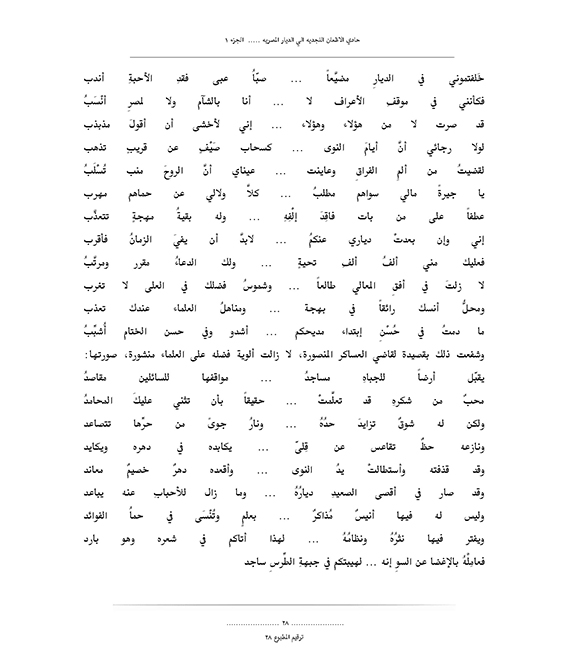 حادي الأظعان النجدية الى الديار المصرية ..... الجزء ١
خلفتموني في الديارِ مضيَّعاً ... صبّاً عبى فقدِ الأحبةِ أندب
فكأنني في موقف الأعراف لا ... أنا بالشآم ولا لمصرِ أنْسَبُ
قد صرت لا من هؤلاء، وهؤلاء، ... إني لأخشى أن أقولَ مذبذب
لولا رجائي أنَّ أيامَ النوى ... كسحاب صَيِّف عن قريبٍ تذهب
لقضيتُ من ألم الفراقِ وعاينت ... عيناي أنَّ الروحَ منب تُسْلَبُ
يا جيرةً مالي سواهم مطلبُ ... كلاَّ ولالي عن حماهم مهرب
عطفاً على من بات فاقدَ إلْفِهِ ... وله بقيةُ مهجةٍ تتعذَّب
إني وإن بعدتْ دياري عنكمُ ... لابدَّ أن يفيَ الزمانُ فأقرب
فعليك مني ألفُ ألفِ تحيةٍ ... ولك الدعاءُ مقرر ومرتَّبُ
لا زلتَ في أفقِ المعالي طالعاً ... وشموسُ فضلك في العلى لا تغرب
ومحلُّ أنسك رائقاً في بهجة ... ومناهلُ العلماء عندك تعذب
ما دمتُ في حُسْنِ إبتداء، مديحكم ... أشدو وفي حسن الختام أُشبِّبُ
وشفعت ذلك بقصيدة لقاضي العساكر المنصورة، لا زالت ألوية فضله على العلماء منشورة، صورتها:
يقبِّل أرضاً للجباهِ مساجدُ ... مواقفها للسائلين مقاصدُ
محبٌ من شكرهِ قد تعلّمتْ ... حقيقاً بأن تثني عليكَ المحامدُ
ولكن له شوقٌ تزايدَ حدُهُ ... ونارُ جوىً من حرِّها تتصاعد
ونازعه حظٌ تقاعس عن قِلىً ... يكابده في دهره ويكايد
وقد قذفته وأستطالتْ يدُ النوى ... وأقعده دهرٌ خصيمٌ معاند
وقد صار في أقصى الصعيدِ ديارُهُ ... وما زال للأحباب عنه يباعد
وليس له فيها أنيسٌ مُذاكرٌ ... بعلمٍ وتُنْسَى في حمأُ الفوائد
ويفتر فيها نثرُهُ ونظامُهُ ... لهذا أتاكم في شعره وهو بارد
فعامِلْهُ بالإغضا عن السو إنه ... لهيبتكم في جبهةِ الطِّرسِ ساجد
...................... ٢٨ ......................
ترقيم المطبوع ٢٨